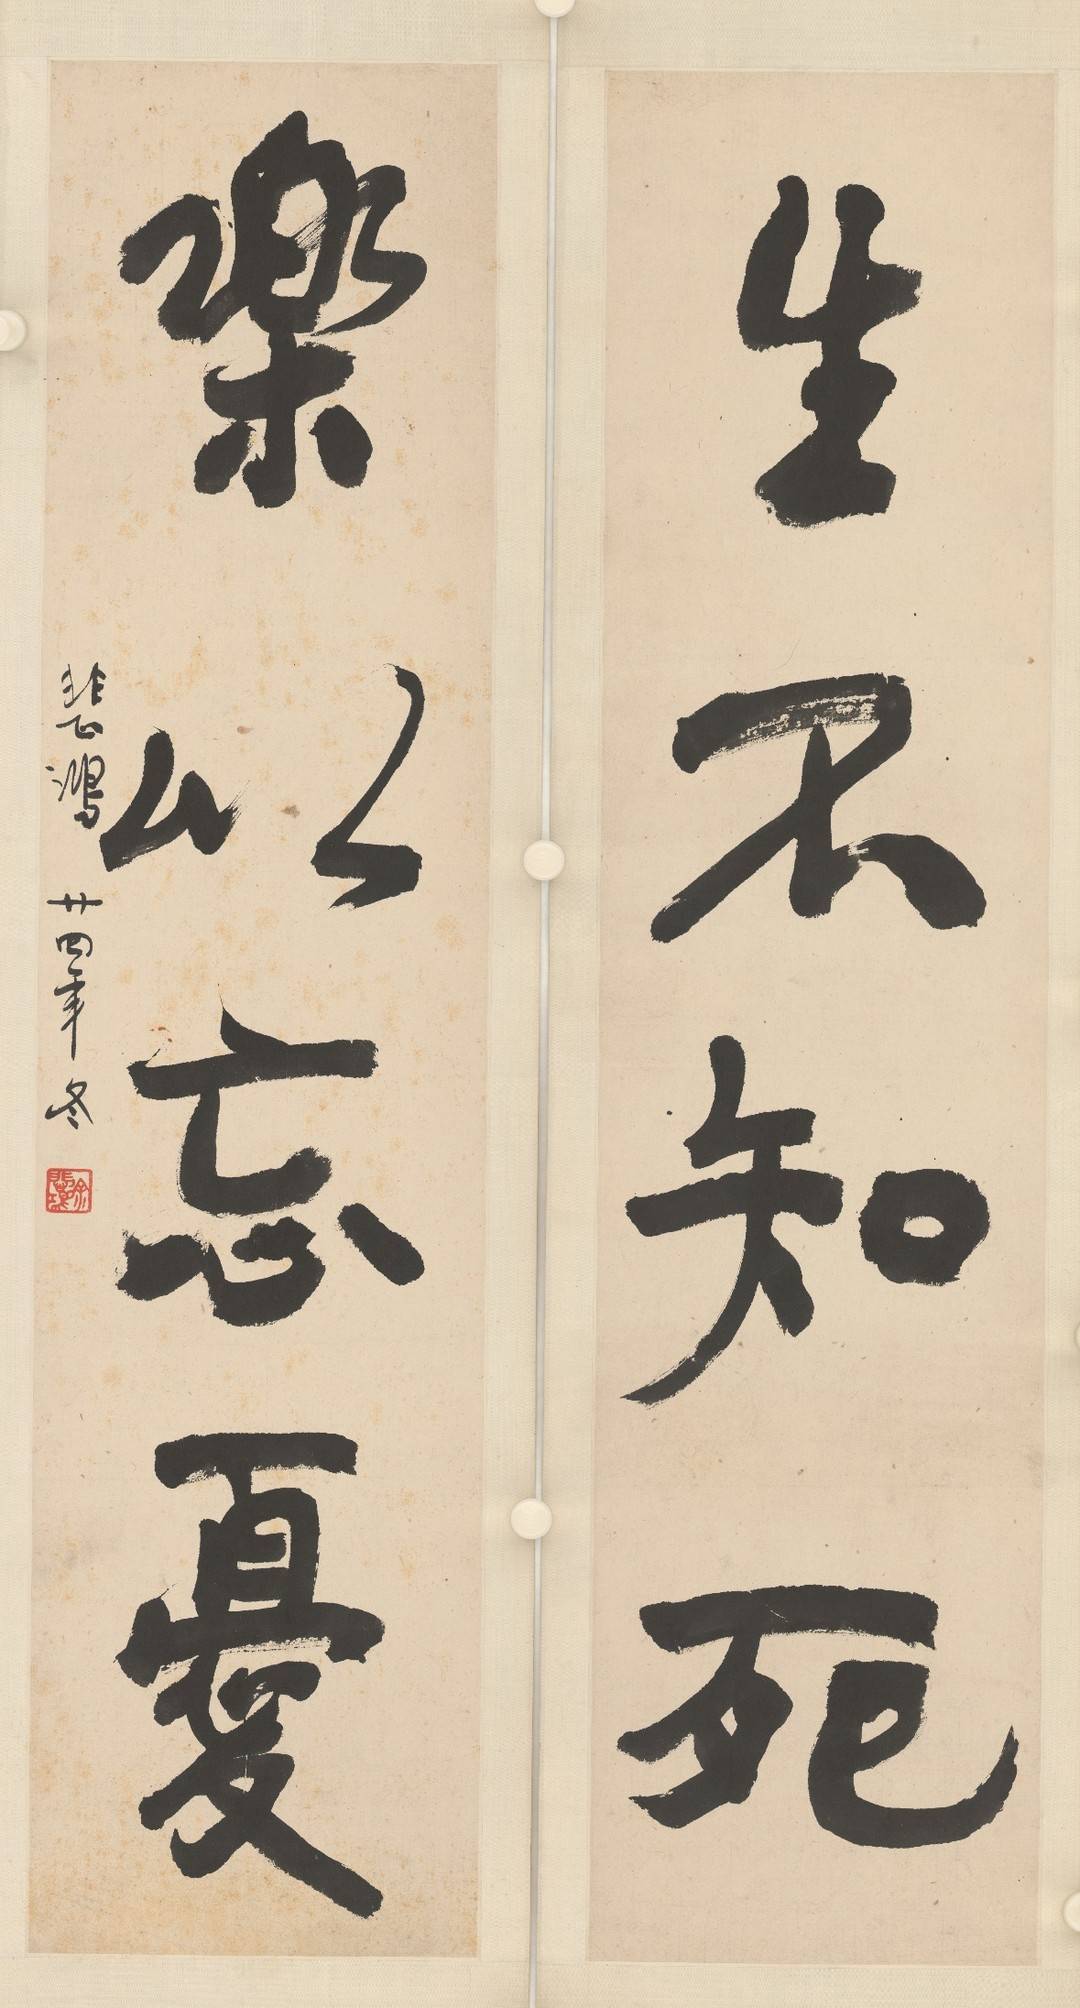 生不知死
樂以忘憂
悲鴻 廿四年冬
徐悲鴻